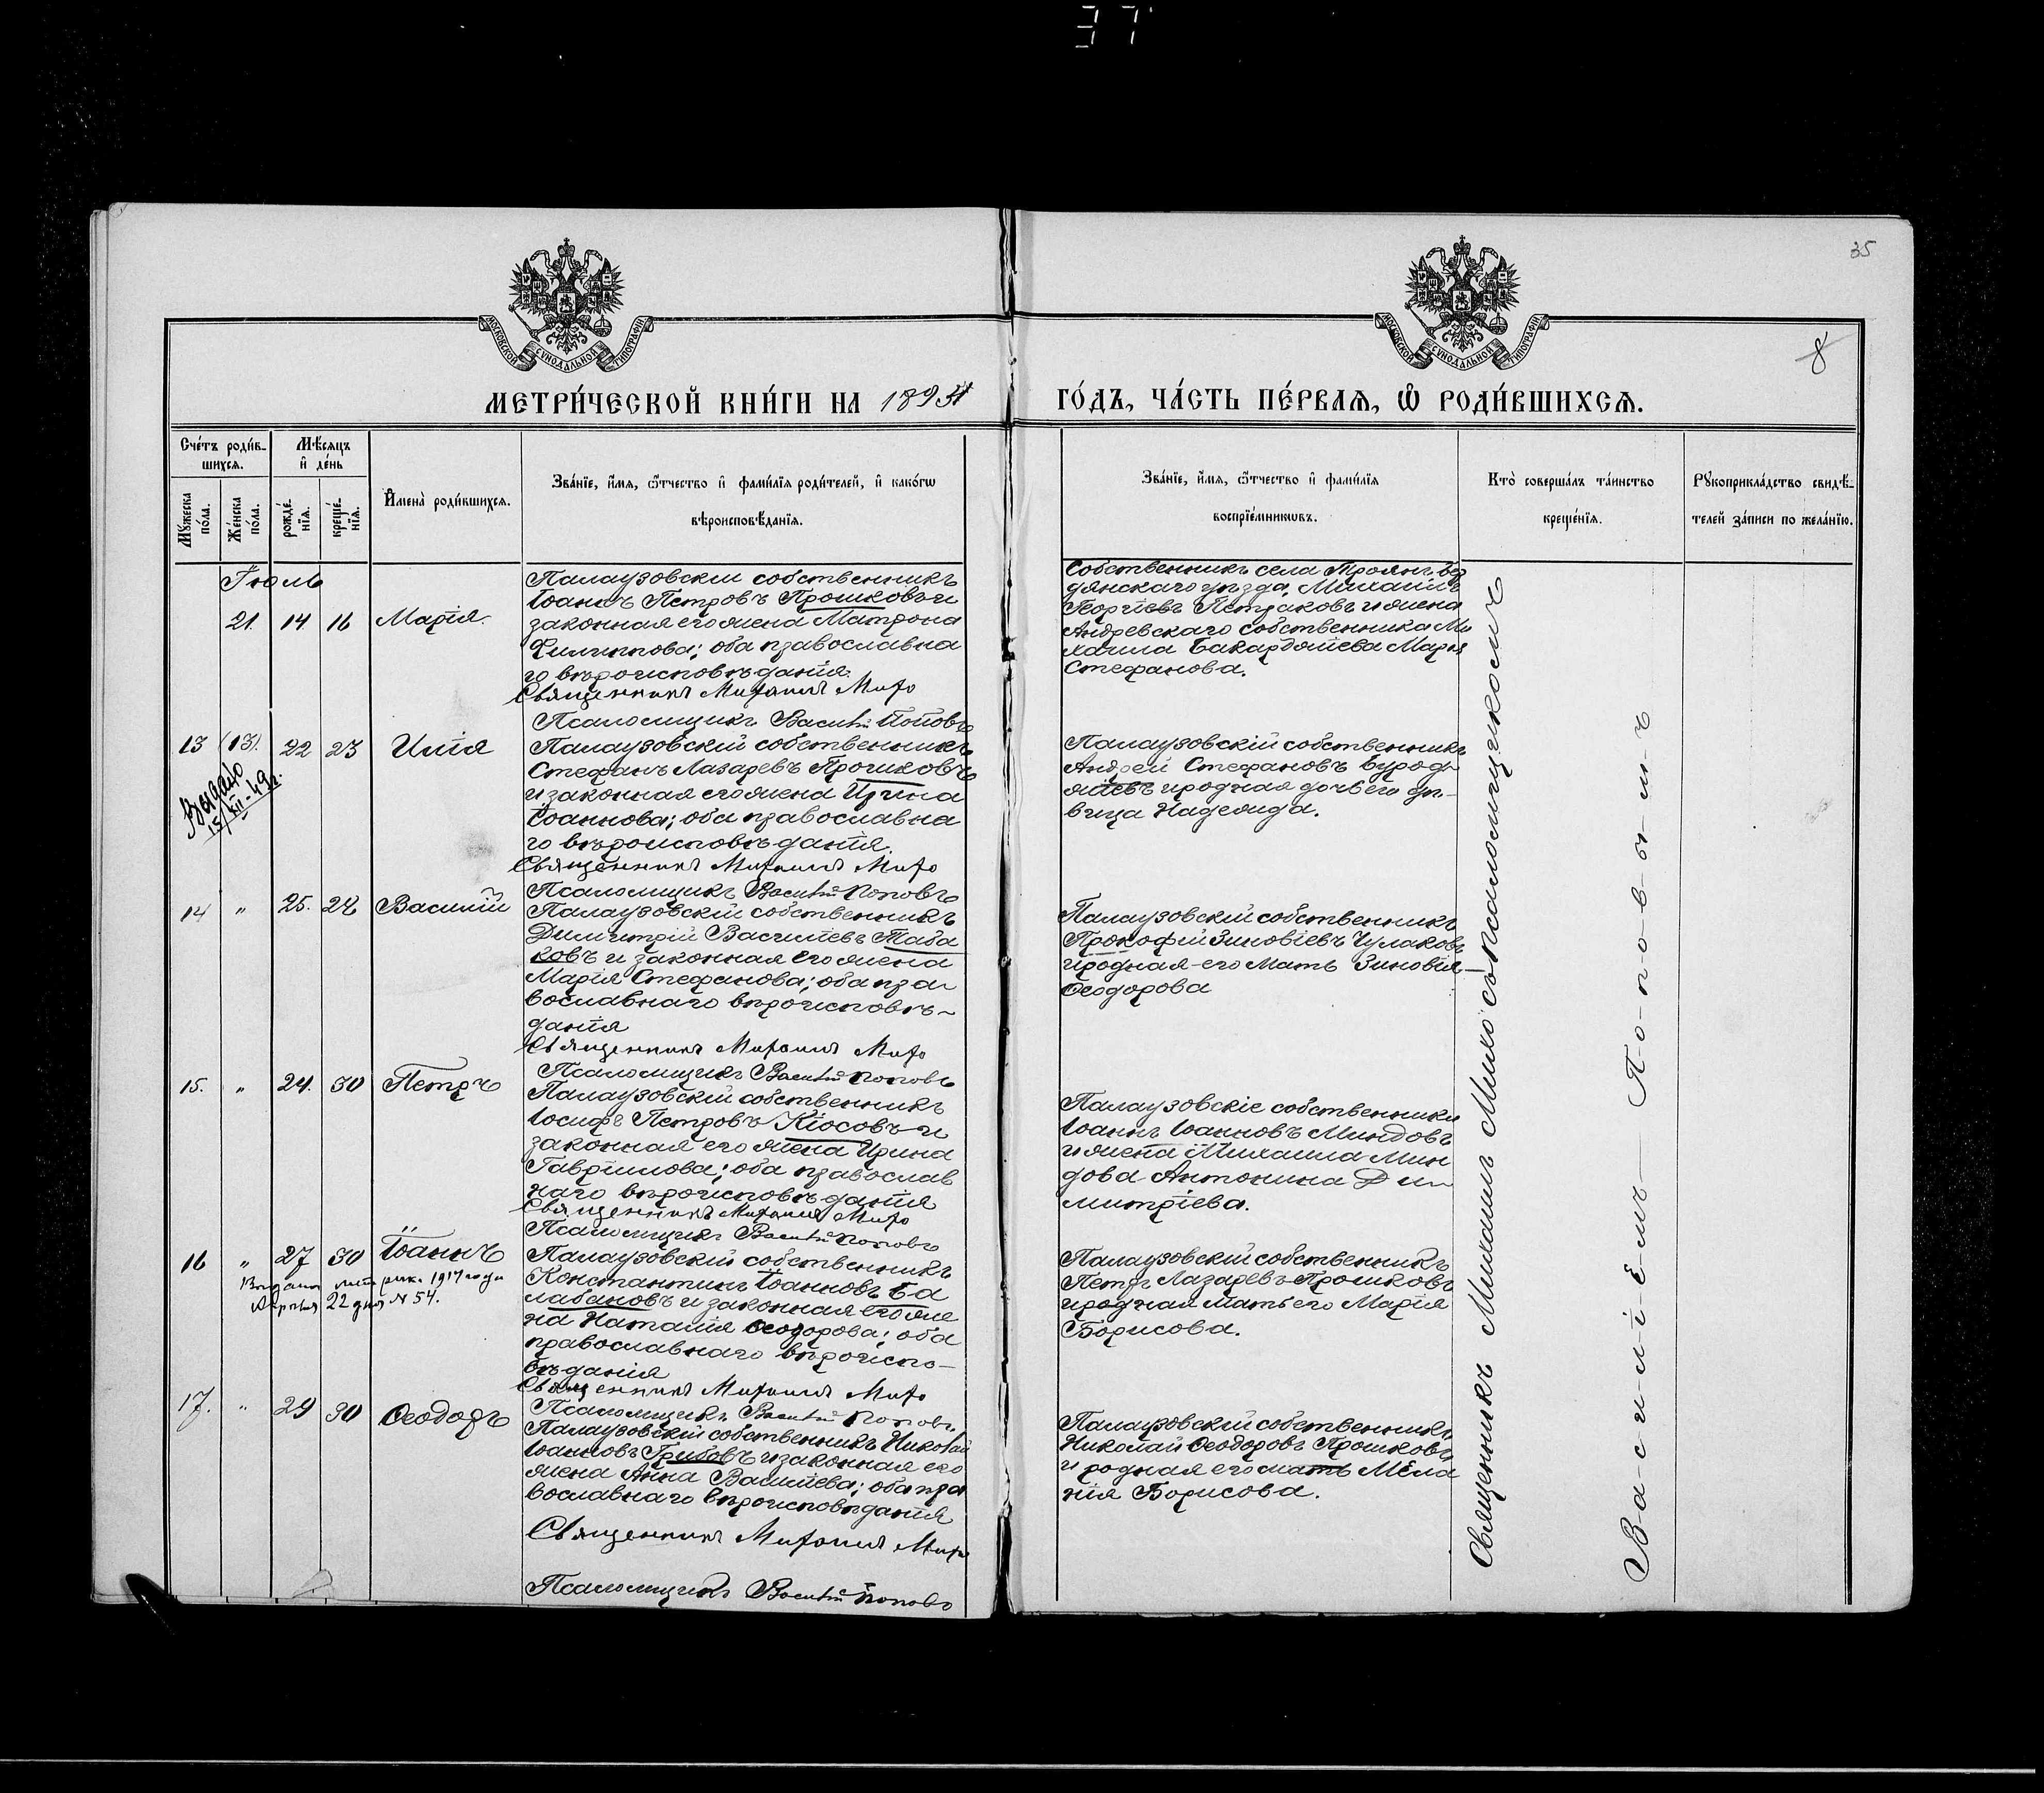 37
35
8
МОСКОВСКОЙ СУНОДАЛЬНОЙ ТИПОГРАФІИ
МОСКОВСКОЙ СУНОДАЛЬНОЙ ТИПОГРАФІИ
МЕТРИ́ЧЕСКОЙ КНИ́ГИ НА 1894
ГО́ДЪ, ЧА́СТЬ ПЕ́РВАЯ, Ѡ РОДИ́ВШИХСЯ.
Сче́тъ роди́в-
шихся.
Мѣ́сяцъ
и҆ де́нь
Му́жеска по́ла.
Же́нска по́ла.
рожде́-нїя.
креще́-нїя.
И҆мена̀ роди́вшихся.
Зва́нїе, и҆́мя, ѻ҆́тчество и҆ фами́лїя роди́телей, и҆ како́гѡ
вѣроисповѣ́данїя.
Зва́нїе, и҆́мя, ѻ҆́тчество и҆ фами́лїя
воспрїе́мникѡвъ.
Кто̀ соверша́лъ та́инство
креще́нїя.
Рꙋкоприкла́дство свидѣ́-
телей за́писи по жела́нїю.
Іюль
21. 14 16 Марія.
Палаузовскій собственникъ
Іоаннъ Петровъ Прошковъ и
законная его жена Матрона
Филиппова; оба православна
го вѣроисповѣданія.
Священникъ Михаилъ Мило
Псаломщикъ Василій Поповъ
Собственникъ села Троянъ Бер
дянскаго уѣзда, Михаилъ
Георгіевъ Петраковъ и жена
Андревскаго собственника Ми
хаила Бакарджіева Марія
Стефанова.
13 (13). 22 23 Илія
Выдано
15/XII-49г.
Палаузовскій собственникъ
Стефанъ Лазаревъ Прошковъ
и законная его жена Ирина
Іоаннова; оба православна
го вѣроисповѣданія.
Священникъ Михаилъ Мило
Псаломщикъ Василій Поповъ
Палаузовскій собственникъ
Андрей Стефановъ Бурод
жіевъ и родная дочь его дѣ-
вица Надежда.
14 " 25. 28 Василій
Палаузовскій собственникъ
Димитрій Василіевъ Таба
ковъ и законная его жена
Марія Стефанова; оба пра
вославнаго вѣроисповѣ-
данія
Священникъ Михаилъ Мило
Псаломщикъ Василій Поповъ
Палаузовскій собственникъ
Прокофій Зиновіевъ Чулаковъ
и родная его мать Зиновія
Ѳеодорова
15. " 24. 30 Петръ
Палаузовскій собственникъ
Іосифъ Петровъ Кіосовъ и
законная его жена Ирина
Гавріилова; оба православ
наго вѣроисповѣданія
Священникъ Михаилъ Мило
Псаломщикъ Василій Поповъ
Палаузовскіе собственники
Іоаннъ Іоанновъ Миндовъ
и жена Михаила Мин
дова Антонина Ди
митріева.
16 " 27 30 Іоаннъ
Выдана метрика 1917 года
Апрѣля 22 дня N 54.
Палаузовскій собственникъ
Константинъ Іоанновъ Ба
лабановъ и законная его же
на Наталія Ѳеодорова; оба
православнаго вѣроиспо-
вѣданія
Священникъ Михаилъ Мило
Псаломщикъ Василій Поповъ
Палаузовскій собственникъ
Петръ Лазаревъ Прошковъ
и родная мать его Марія
Борисова.
17. " 29 30 Ѳеодоръ
Палаузовскій собственникъ Николай
Іоанновъ Грибовъ и законная его
жена Анна Василіева; оба пра
вославнаго вѣроисповѣданія
Священникъ Михаилъ Мило
Псаломщикъ Василій Поповъ
Палаузовскій собственникъ
Николай Ѳеодоровъ Прошковъ
и родная его мать Мела
нія Борисова.
Священникъ Михаилъ Мило съ псаломщикомъ
Василіемъ Поповымъ